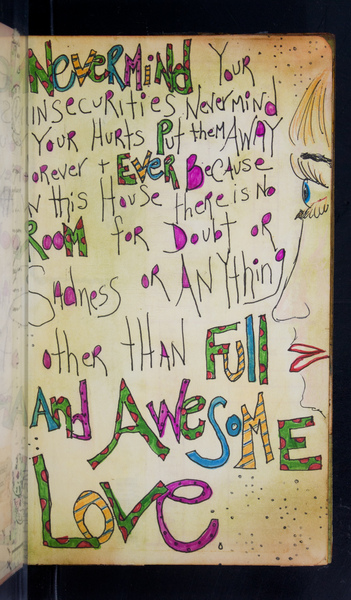 NEVERMIND Your
INSECURITIES Nevermind
Your Hurts Put them AWAY
orever + EVER Because
n this House there is No
ROOM for Doubt or
Sadness or ANYthing
other than Full
And AWESOME
Love